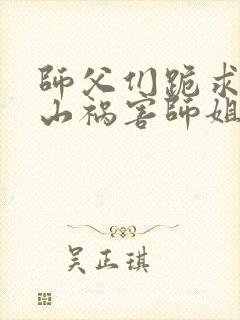 師父们跪求
山祸害師姐
吴正琪